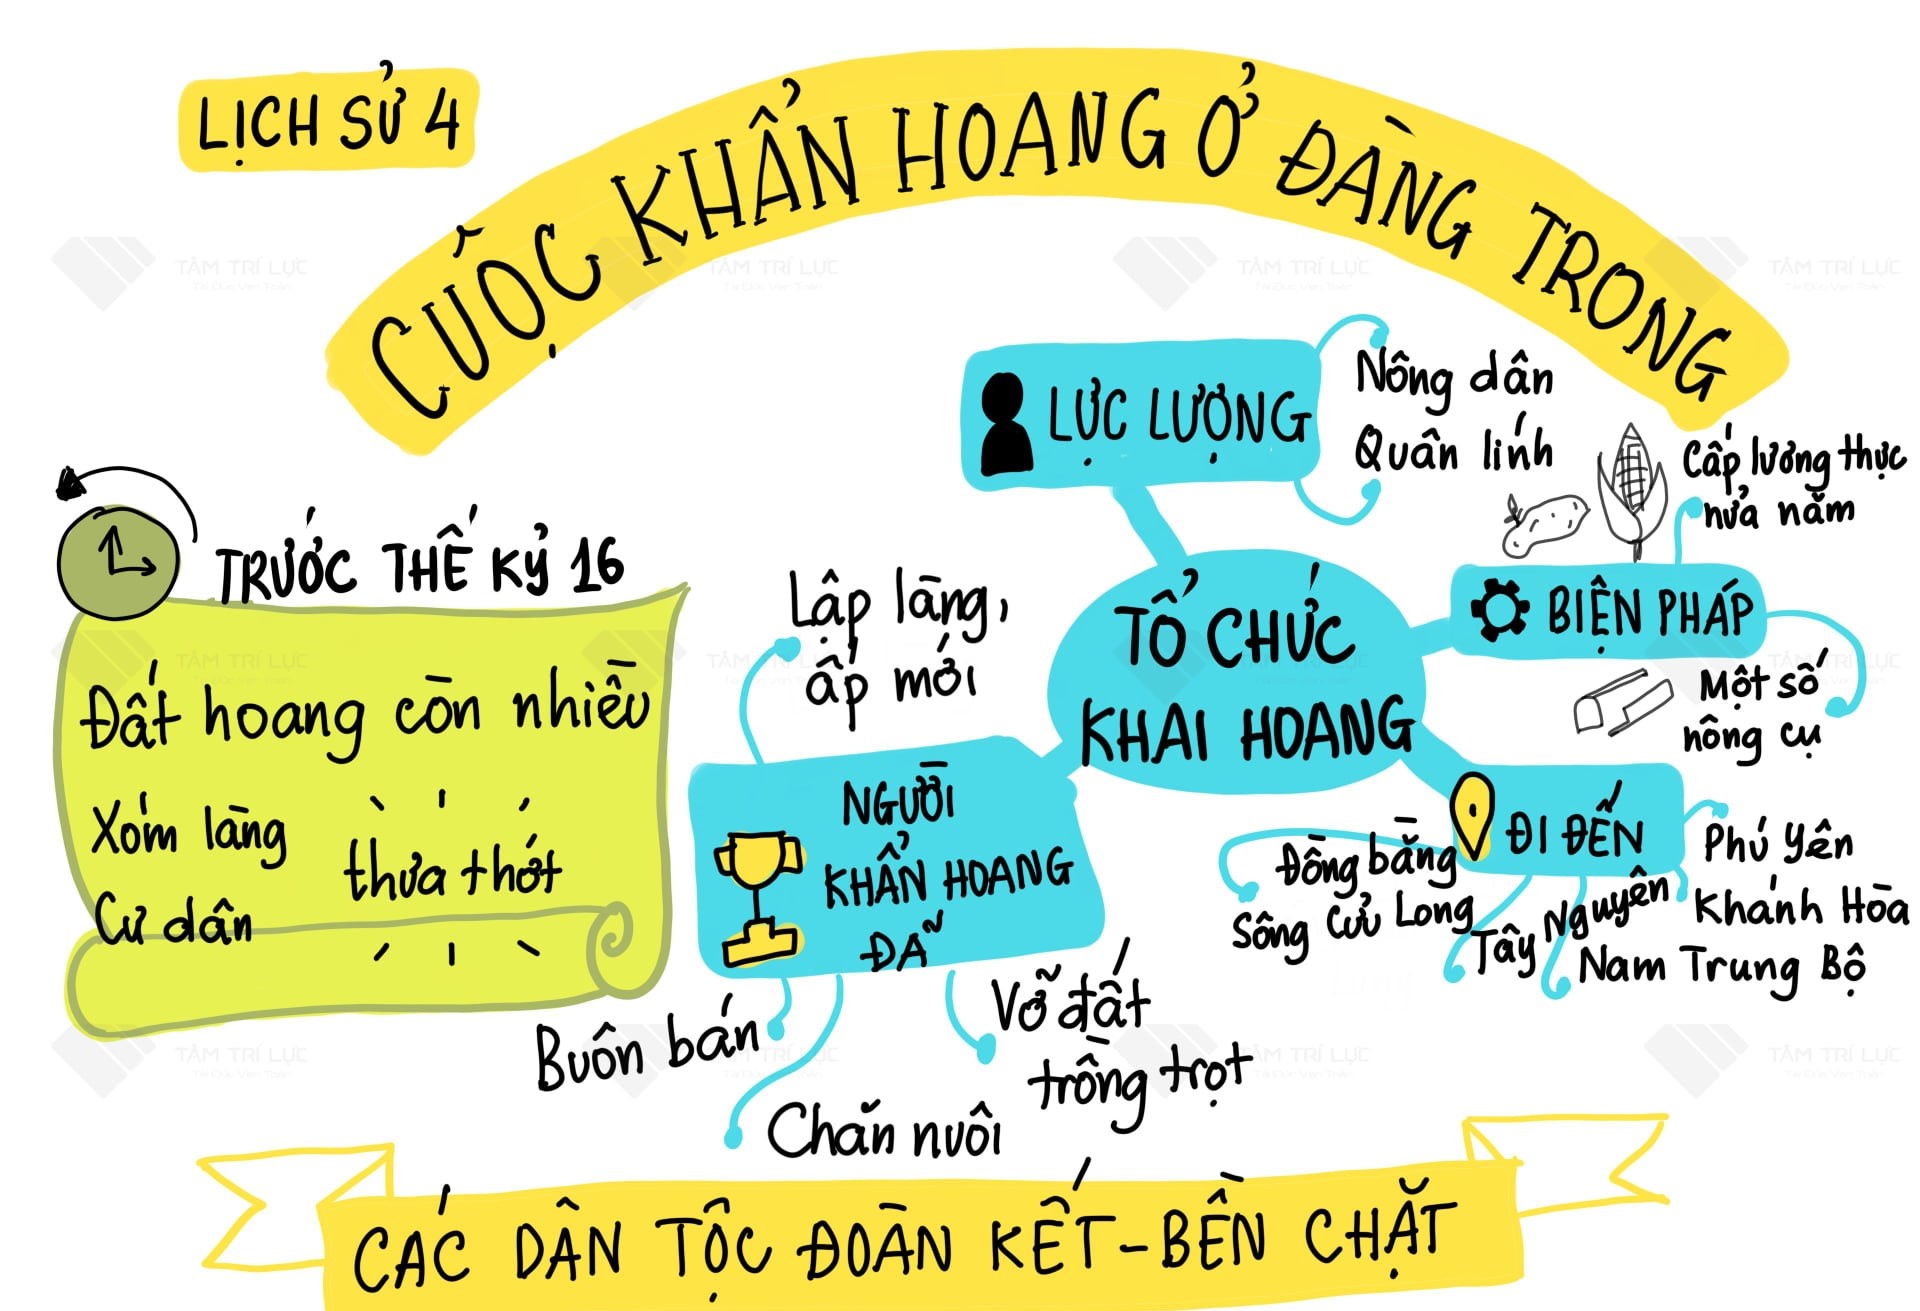 LỊCH SỬ 4
CUỘC KHẨN HOANG Ở ĐÀNG TRONG
TRƯỚC THẾ KỶ 16
Đất hoang còn nhiều
Xóm làng
Cư dân
thưa thớt
TỔ CHỨC
KHAI HOANG
LỰC LƯỢNG
Nông dân
Quân lính
BIỆN PHÁP
Cấp lương thực
nửa năm
Một số
nông cụ
ĐI ĐẾN
Phú Yên
Khánh Hòa
Nam Trung Bộ
Tây Nguyên
Đồng bằng
Sông Cửu Long
NGƯỜI
KHẨN HOANG
ĐÃ
Lập làng,
ấp mới
Buôn bán
Chăn nuôi
Vỡ đất
trồng trọt
CÁC DÂN TỘC ĐOÀN KẾT-BỀN CHẶT
TÂM TRÍ LỰC